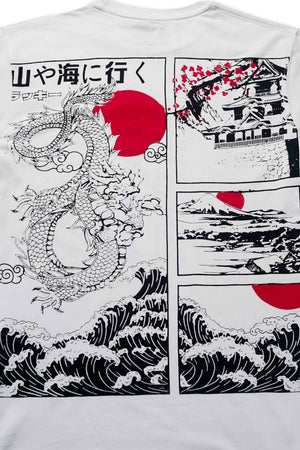 山や海に行く
ラッキー